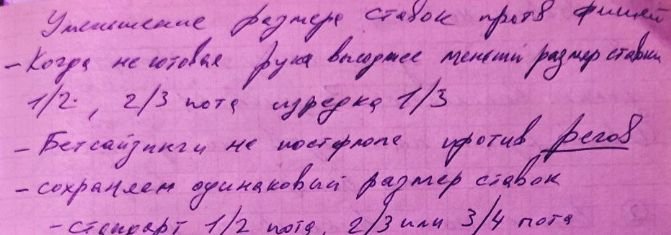 Уменьшение размера ставок против фишей
- Когда не готовая рука выгоднее меньший размер ставки
1/2, 2/3 пота изредка 1/3
- Бетсайзинги на постфлопе против регов
- сохраняем одинаковый размер ставок
- стандарт 1/2 пота, 2/3 или 3/4 пота